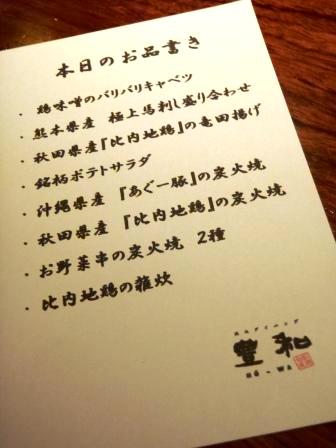 本日のお品書き
・鶏味噌のバリバリキャベツ
・熊本県産 極上馬刺し盛り合わせ
・秋田県産『比内地鶏』の竜田揚げ
・銘柄ポテトサラダ
・沖縄県産 『あぐー豚』の炭火焼
・秋田県産 『比内地鶏』の炭火焼
・お野菜串の炭火焼 2種
・比内地鶏の雑炊
豊和